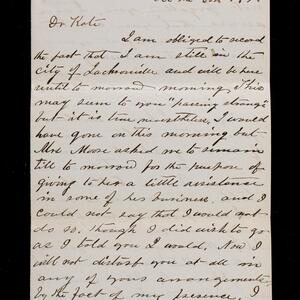 Dr Kate.
I am obliged to record
the fact that I am still in the
city of Jacksonville and will be here
until to morrow morning. This
may seem to you "passing strange"
but it is true nevertheless, I would
have gone on this morning but
Mrs. Moore asked me to remain
till to morrow for the purpose of
giving to her a little assistance
in some of her business, and I
could not say that I would not
do so, though I did wish to go
as I told you I would. Now I
will not disturb you at all in
any of your arrangements
by the fact of my presence. I